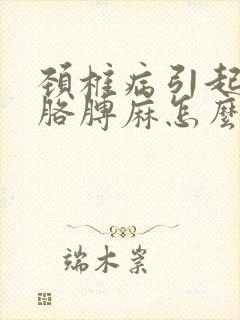 颈椎病引起
胳脾麻怎麼
端木棠